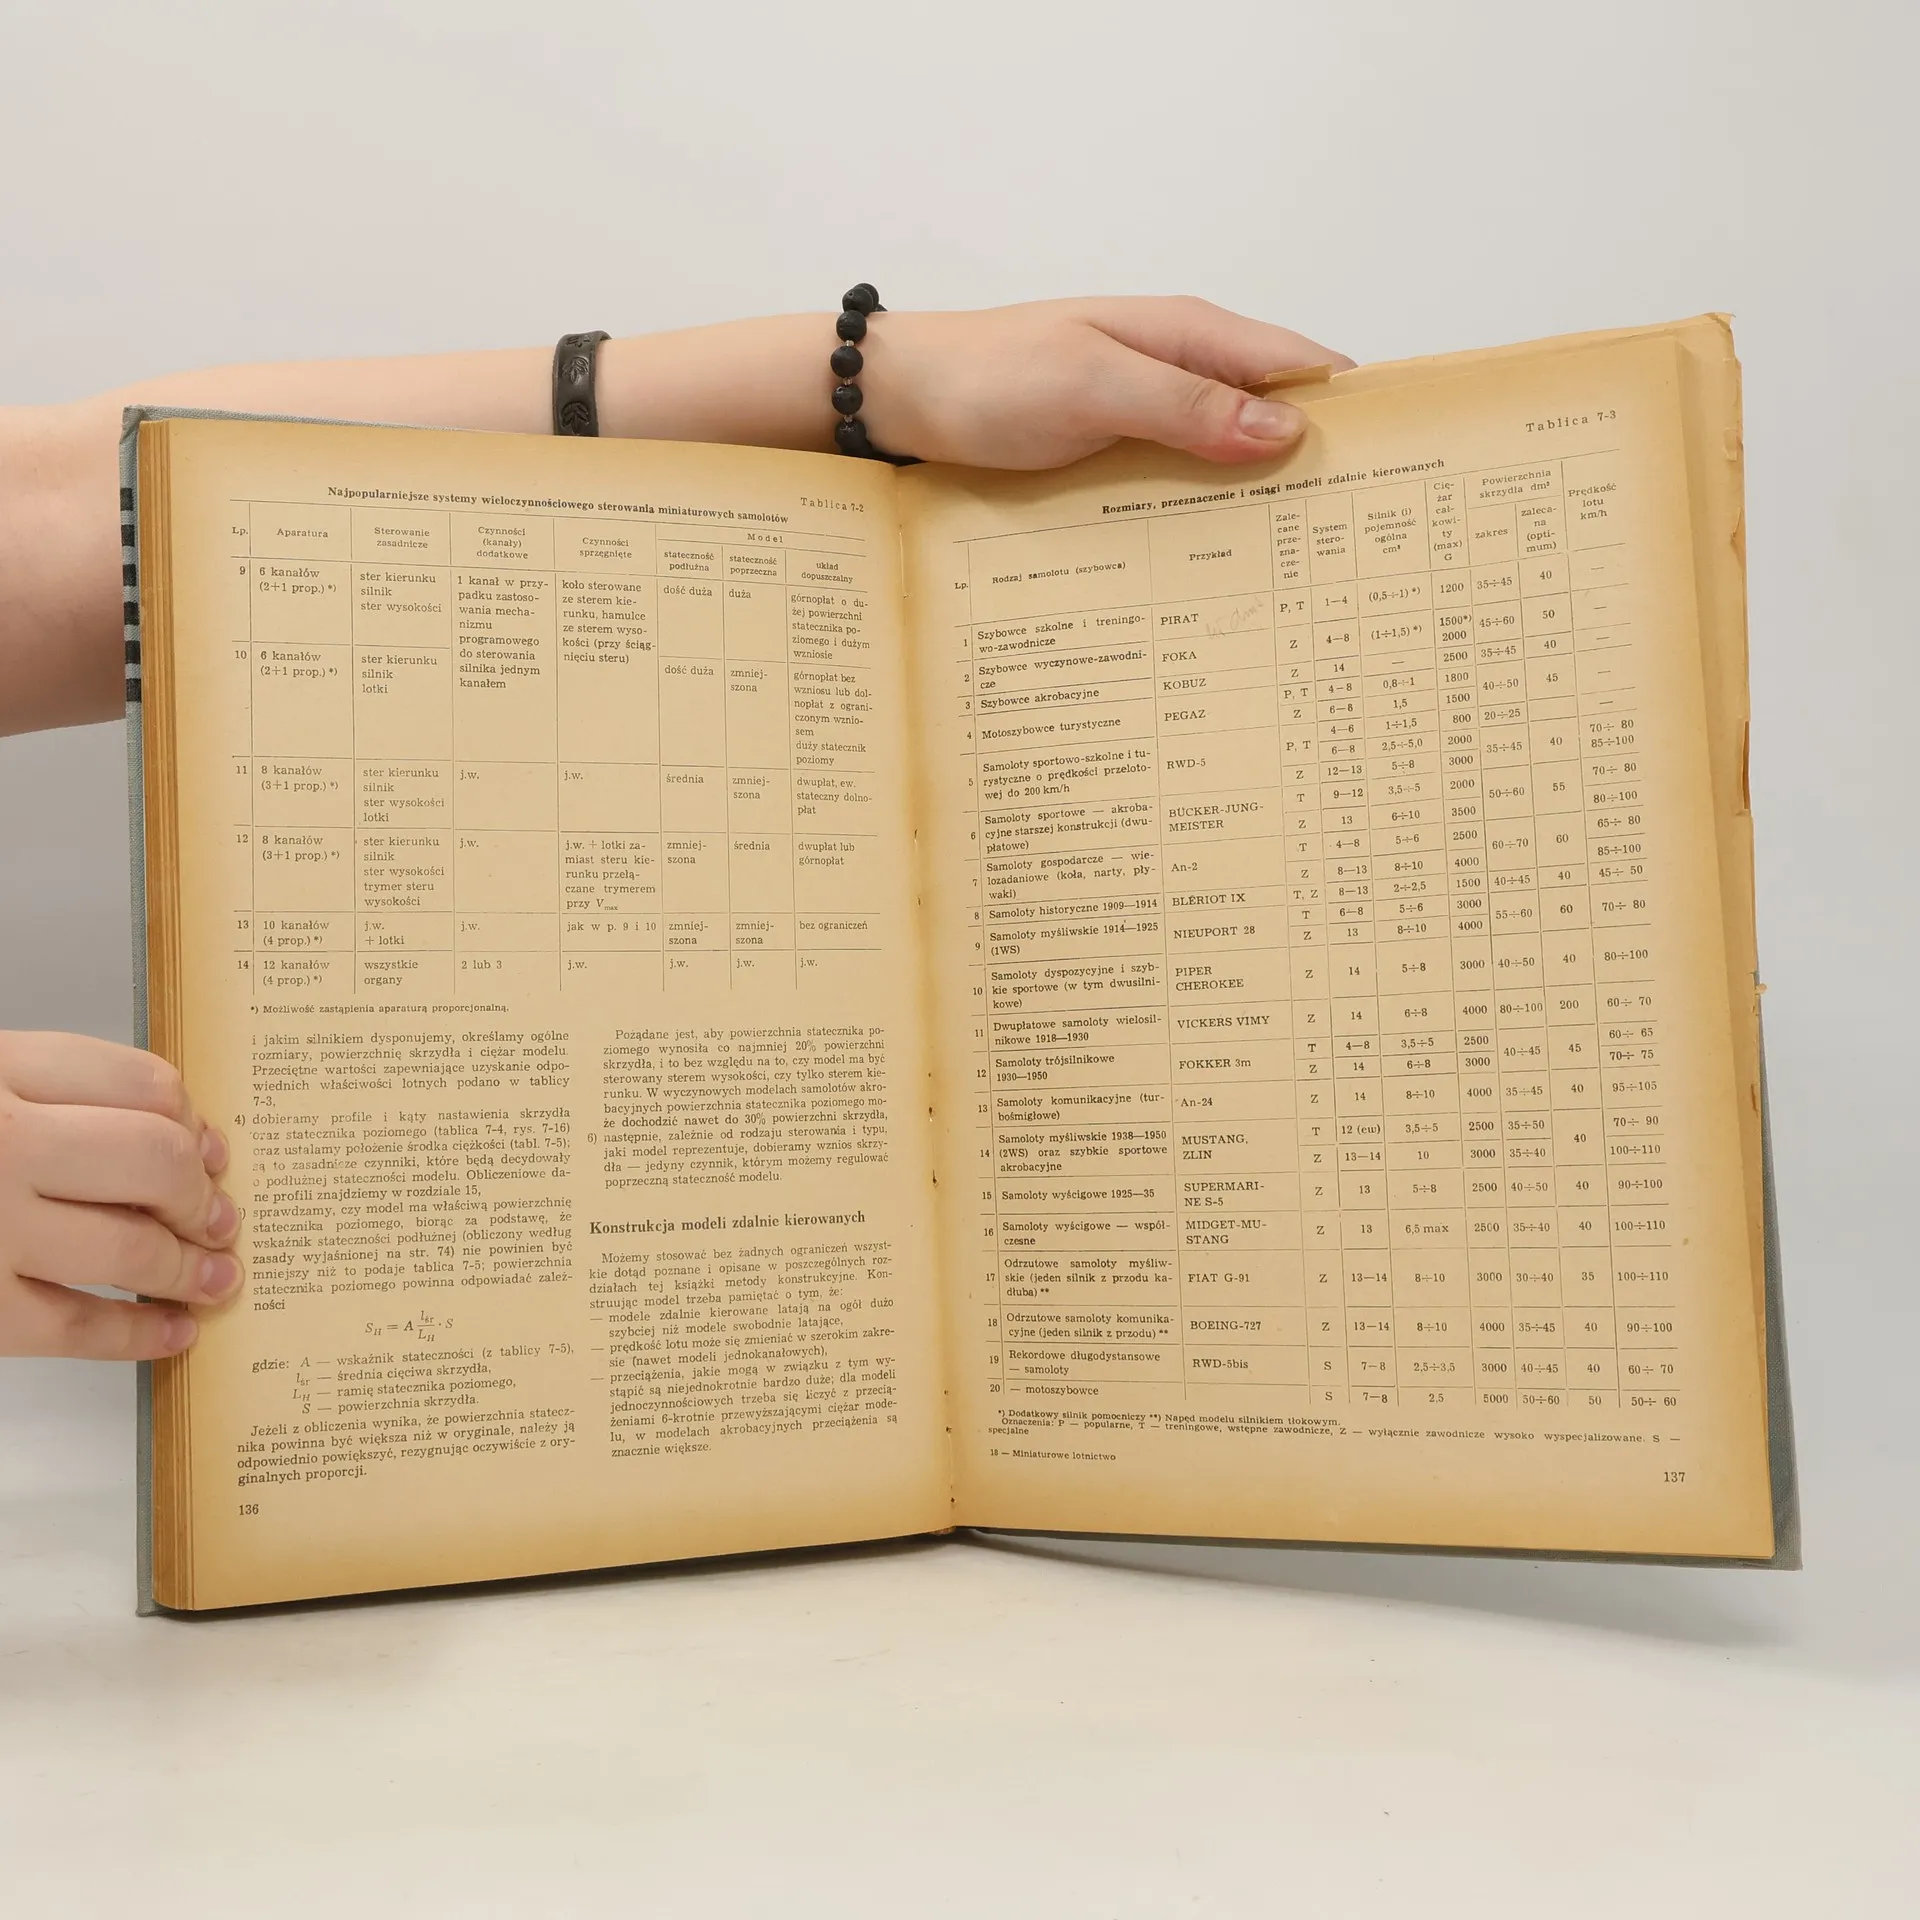 Tablica 7-2
Najpopularniejsze systemy wieloczynnościowego sterowania miniaturowych samolotów
Lp. Aparatura Sterowanie zasadnicze Czynności (kanały) dodatkowe Czynności sprzęgnięte Model
stateczność podłużna stateczność poprzeczna układ dopuszczalny
9 6 kanałów (2+1 prop.) *) ster kierunku silnik ster wysokości 1 kanał w przypadku zastosowania mechanizmu programowego do sterowania silnika jednym kanałem koło sterowane ze sterem kierunku, hamulce ze sterem wysokości (przy ściągnięciu steru) dość duża duża górnopłat o dużej powierzchni statecznika poziomego i dużym wzniosie
10 6 kanałów (2+1 prop.) *) ster kierunku silnik lotki dość duża zmniejszona górnopłat bez wzniosu lub dolnopłat z ograniczonym wzniosem duży statecznik poziomy
11 8 kanałów (3+1 prop.) *) ster kierunku silnik ster wysokości lotki j.w. j.w. średnia zmniejszona dwupłat, ew. stateczny dolnopłat
12 8 kanałów (3+1 prop.) *) ster kierunku silnik ster wysokości trymer steru wysokości j.w. j.w. + lotki zamiast steru kierunku przełączane trymerem przy Vmax zmniejszona średnia dwupłat lub górnopłat
13 10 kanałów (4 prop.) *) j.w. + lotki j.w. jak w p. 9 i 10 zmniejszona zmniejszona bez ograniczeń
14 12 kanałów (4 prop.) *) wszystkie organy 2 lub 3 j.w. j.w. j.w. j.w.
*) Możliwość zastąpienia aparaturą proporcjonalną.
i jakim silnikiem dysponujemy, określamy ogólne
rozmiary, powierzchnię skrzydła i ciężar modelu.
Przeciętne wartości zapewniające uzyskanie odpo-
wiednich właściwości lotnych podano w tablicy
7-3,
4) dobieramy profile i kąty nastawienia skrzydła
oraz statecznika poziomego (tablica 7-4, rys. 7-16)
oraz ustalamy położenie środka ciężkości (tabl. 7-5);
są to zasadnicze czynniki, które będą decydowały
o podłużnej stateczności modelu. Obliczeniowe da-
ne profili znajdziemy w rozdziale 15,
) sprawdzamy, czy model ma właściwą powierzchnię
statecznika poziomego, biorąc za podstawę, że
wskaźnik stateczności podłużnej (obliczony według
zasady wyjaśnionej na str. 74) nie powinien być
mniejszy niż to podaje tablica 7-5; powierzchnia
statecznika poziomego powinna odpowiadać zależ-
ności
S_H = A l_śr / L_H · S
gdzie: A — wskaźnik stateczności (z tablicy 7-5),
l_śr — średnia cięciwa skrzydła,
L_H — ramię statecznika poziomego,
S — powierzchnia skrzydła.
Jeżeli z obliczenia wynika, że powierzchnia statecz-
nika powinna być większa niż w oryginale, należy ją
odpowiednio powiększyć, rezygnując oczywiście z ory-
ginalnych proporcji.
136
Pożądane jest, aby powierzchnia statecznika po-
ziomego wynosiła co najmniej 20% powierzchni
skrzydła, i to bez względu na to, czy model ma być
sterowany sterem wysokości, czy tylko sterem kie-
runku. W wyczynowych modelach samolotów akro-
bacyjnych powierzchnia statecznika poziomego mo-
że dochodzić nawet do 30% powierzchni skrzydła,
6) następnie, zależnie od rodzaju sterowania i typu,
jaki model reprezentuje, dobieramy wznios skrzy-
dła — jedyny czynnik, którym możemy regulować
poprzeczną stateczność modelu.
Konstrukcja modeli zdalnie kierowanych
Możemy stosować bez żadnych ograniczeń wszyst-
kie dotąd poznane i opisane w poszczególnych roz-
działach tej książki metody konstrukcyjne. Kon-
struując model trzeba pamiętać o tym, że:
— modele zdalnie kierowane latają na ogół dużo
szybciej niż modele swobodnie latające,
— prędkość lotu może się zmieniać w szerokim zakre-
sie (nawet modeli jednokanałowych),
— przeciążenia, jakie mogą w związku z tym wy-
stąpić są niejednokrotnie bardzo duże; dla modeli
jednoczynnościowych trzeba się liczyć z przecią-
żeniami 6-krotnie przewyższającymi ciężar mode-
lu, w modelach akrobacyjnych przeciążenia są
znacznie większe.
Tablica 7-3
Rozmiary, przeznaczenie i osiągi modeli zdalnie kierowanych
Lp. Rodzaj samolotu (szybowca) Przykład Zalecane przeznaczenie System sterowania Silnik (i) pojemność ogólna cm³ Ciężar całkowity (max) G Powierzchnia skrzydła dm² zakres zalecana (optimum) Prędkość lotu km/h
1 Szybowce szkolne i treningowo-zawodnicze PIRAT P, T 1—4 (0,5÷1) *) 1200 35÷45 40 —
2 Szybowce wyczynowe-zawodnicze FOKA Z 4—8 (1÷1,5) *) 1500*) 2000 45÷60 50 —
3 Szybowce akrobacyjne KOBUZ Z 14 — 2500 35÷45 40 —
4 Motoszybowce turystyczne PEGAZ P, T 4—8 0,8÷1 1800 40÷50 45 —
Z 6—8 1,5 1500 —
5 Samoloty sportowo-szkolne i turystyczne o prędkości przelotowej do 200 km/h RWD-5 P, T 4—6 1÷1,5 800 20÷25 70÷80
6—8 2,5÷5,0 2000 35÷45 40 85÷100
Z 12—13 5÷8 3000
6 Samoloty sportowe — akrobacyjne starszej konstrukcji (dwupłatowe) BÜCKER-JUNGMEISTER T 9—12 3,5÷5 2000 50÷60 55 70÷80
Z 13 6÷10 3500 80÷100
7 Samoloty gospodarcze — wielozadaniowe (koła, narty, pływaki) An-2 T 4—8 5÷6 2500 60÷70 60 65÷80
Z 8—13 8÷10 4000 85÷100
8 Samoloty historyczne 1909—1914 BLÉRIOT IX T, Z 8—13 2÷2,5 1500 40÷45 40 45÷50
9 Samoloty myśliwskie 1914—1925 (1WS) NIEUPORT 28 T 6—8 5÷6 3000 55÷60 60 70÷80
Z 13 8÷10 4000
10 Samoloty dyspozycyjne i szybkie sportowe (w tym dwusilnikowe) PIPER CHEROKEE Z 14 5÷8 3000 40÷50 40 80÷100
11 Dwupłatowe samoloty wielosilnikowe 1918—1930 VICKERS VIMY Z 14 6÷8 4000 80÷100 200 60÷70
12 Samoloty trójsilnikowe 1930—1950 FOKKER 3m T 4—8 3,5÷5 2500 40÷45 45 60÷65
Z 14 6÷8 3000 70÷75
13 Samoloty komunikacyjne (turbośmigłowe) An-24 Z 14 8÷10 4000 35÷45 40 95÷105
14 Samoloty myśliwskie 1938—1950 (2WS) oraz szybkie sportowe akrobacyjne MUSTANG, ZLIN T 12 (ew) 3,5÷5 2500 35÷50 40 70÷90
Z 13—14 10 3000 35÷40 100÷110
15 Samoloty wyścigowe 1925—35 SUPERMARINE S-5 Z 13 5÷8 2500 40÷50 40 90÷100
16 Samoloty wyścigowe — współczesne MIDGET-MUSTANG Z 13 6,5 max 2500 35÷40 40 100÷110
17 Odrzutowe samoloty myśliwskie (jeden silnik z przodu kadłuba) ** FIAT G-91 Z 13—14 8÷10 3000 30÷40 35 100÷110
18 Odrzutowe samoloty komunikacyjne (jeden silnik z przodu) ** BOEING-727 Z 13—14 8÷10 4000 35÷45 40 90÷100
19 Rekordowe długodystansowe — samoloty RWD-5bis S 7—8 2,5÷3,5 3000 40÷45 40 60÷70
20 — motoszybowce S 7—8 2,5 5000 50÷60 50 50÷60
*) Dodatkowy silnik pomocniczy **) Napęd modelu silnikiem tłokowym.
Oznaczenia: P — popularne, T — treningowe, wstępne zawodnicze, Z — wyłącznie zawodnicze wysoko wyspecjalizowane. S —
specjalne
18 — Miniaturowe lotnictwo
137